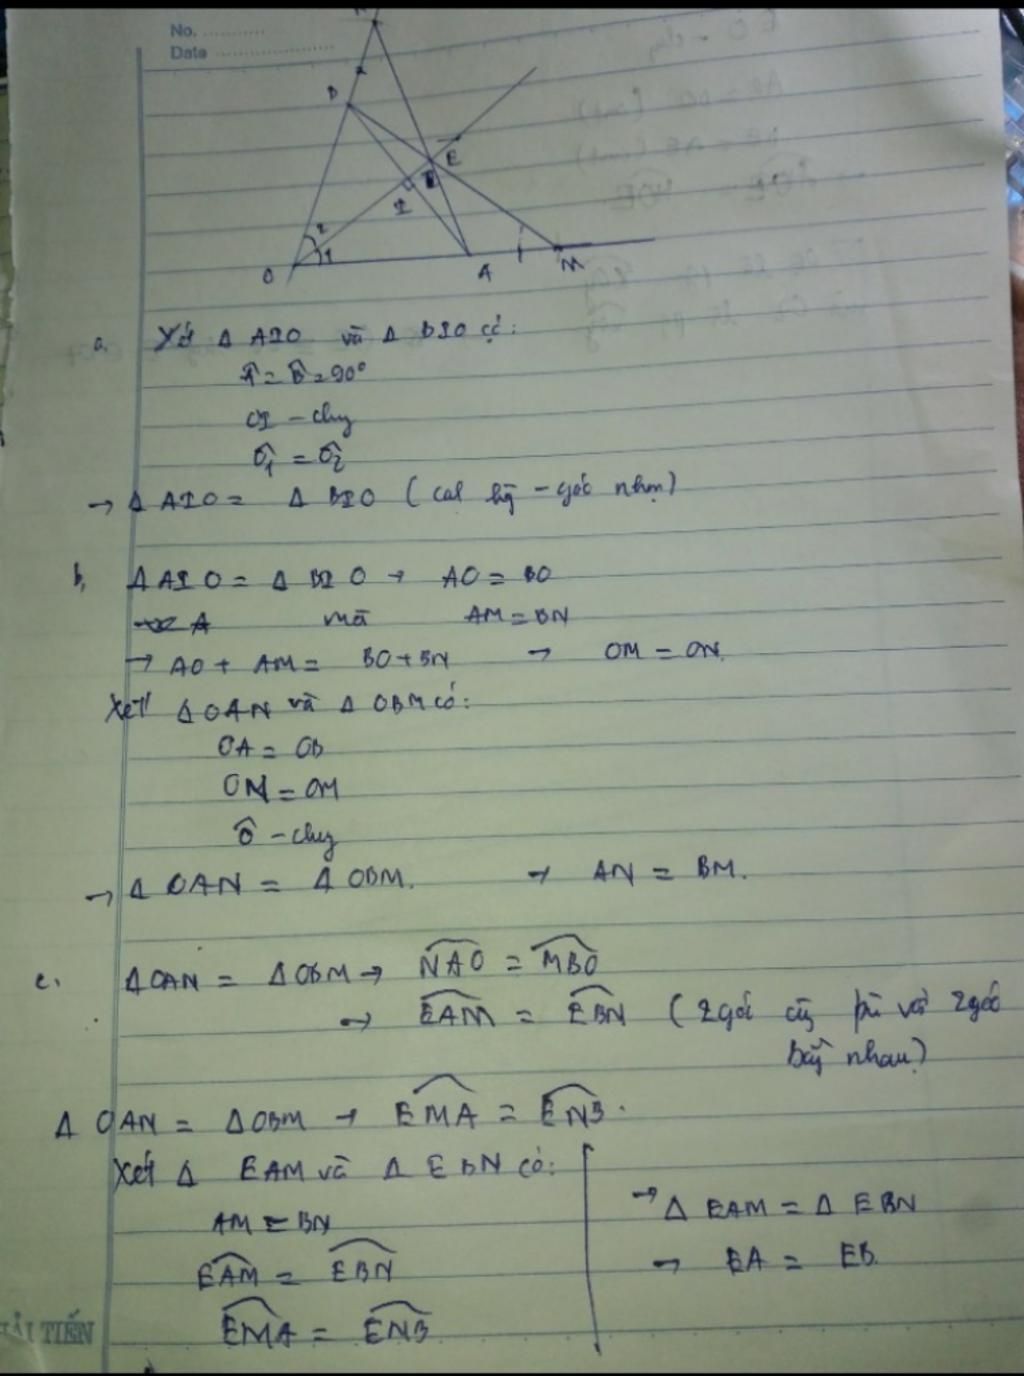 No. ............
Date .....................
B
E
I
2
1
O
A
M
a. Xét Δ AIO và Δ BIO có:
Î = B̂ = 90°
OI - chg
Ô1 = Ô2
→ Δ AIO = Δ BIO ( cạh hỹ - góc nhọn)
b, Δ AIO = Δ BIO → AO = BO
mà AM = BN
→ AO + AM = BO + BN → OM = ON.
Xét Δ OAN và Δ OBM có:
OA = OB
ON = OM
Ô - chg
→ Δ OAN = Δ OBM. → AN = BM.
c. Δ OAN = Δ OBM → NAO = MBO
→ EAM = EBN ( 2 góc cùg bù vs 2 góc
bằg nhau)
Δ OAN = Δ OBM → EMA = ENB.
Xét Δ EAM và Δ EBN có:
AM = BN
EAM = EBN
EMA = ENB
→ Δ EAM = Δ EBN
→ EA = EB
HẢI TIẾN